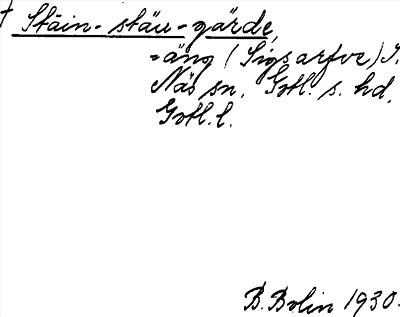 † Stäin-stäu-gärde,
=äng (Sigsarfve) I.
Näs sn. Gotl. s. hd.
Gotl. l.
B. Bolin 1930.